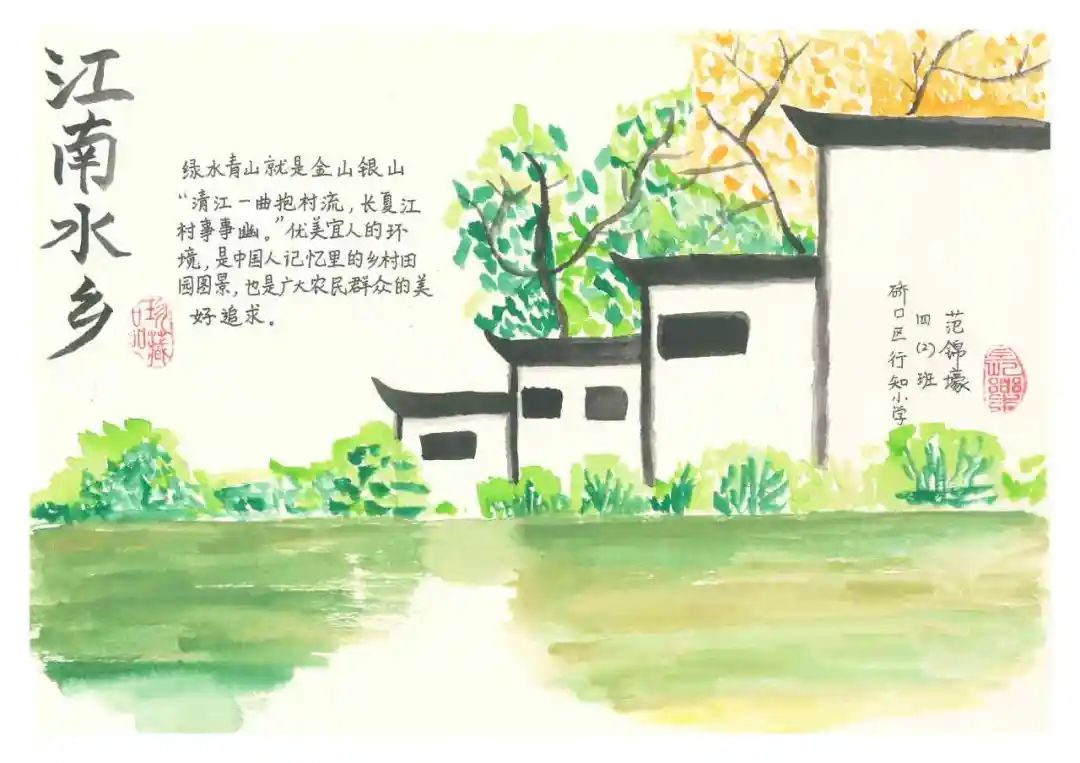 江南水乡
绿水青山就是金山银山
“清江一曲抱村流，长夏江
村事事幽。”优美宜人的环
境，是中国人记忆里的乡村田
园图景，也是广大农民群众的美
好追求。
珍藏
范锦壕
四(2)班
硚口区行知小学